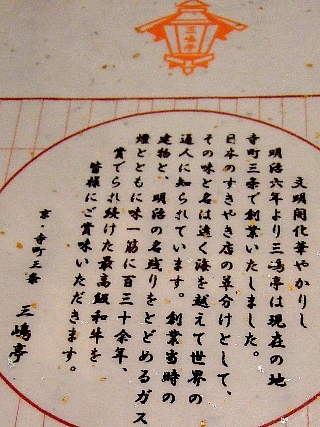 三嶋亭
文明開化華やかりし
明治六年より三嶋亭は現在の地
寺町三条で創業いたしました。
日本のすきやき店の草分けとして、
その味と名は遠く海を越えて世界の
通人に知られています。創業当時の
建物と、明治の名残りをとどめるガス
燈とともに味一筋に百三十余年、
賞でられ続けた最高級和牛を
皆様にご賞味いただきます。
京・寺町三条
三嶋亭